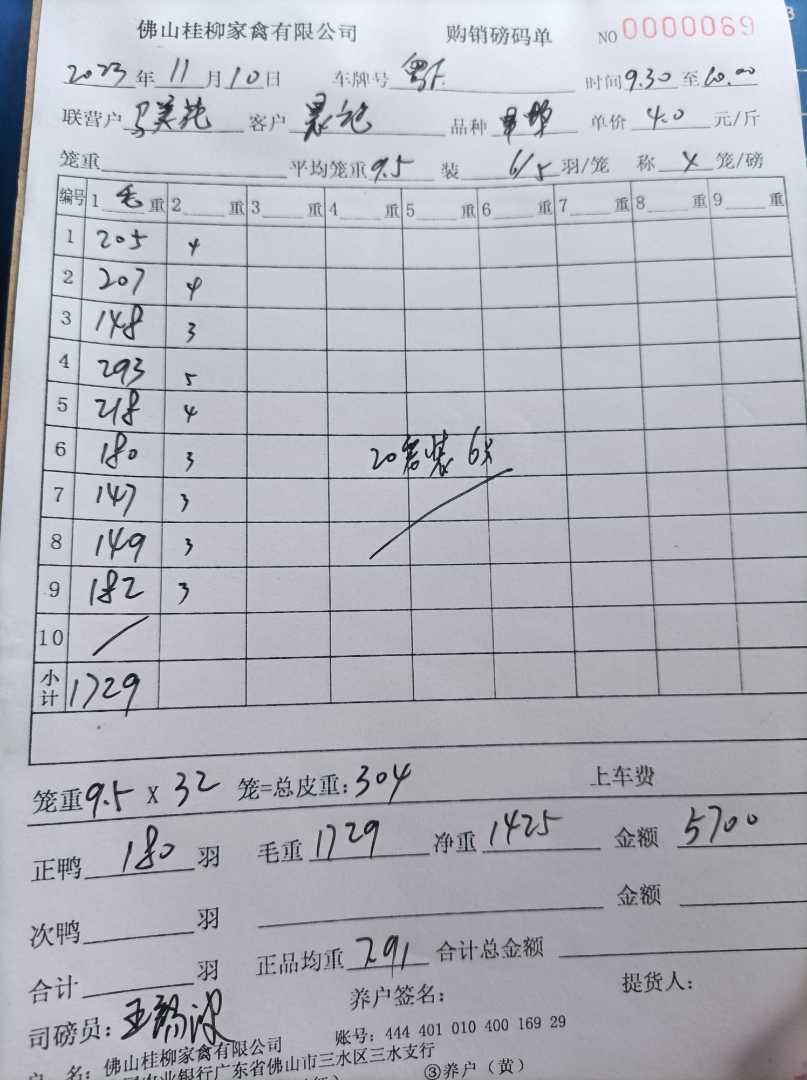 佛山桂柳家禽有限公司 购销磅码单 NO 0000069
2023年11月10日 车牌号 粤 时间9.30至10.00
联营户 客户 品种 单价 4.0 元/斤
笼重 平均笼重9.5 装 6/5 羽/笼 称 X 笼/磅
编号 1 毛 重 2 重 3 重 4 重 5 重 6 重 7 重 8 重 9 重
1 205 4
2 207 4
3 148 3
4 293 5
5 218 4
6 180 3 20笼装 6只
7 147 3
8 149 3
9 182 3
10 /
小计 1729
笼重9.5 X 32 笼=总皮重:304 上车费
正鸭 180 羽 毛重 1729 净重 1425 金额 5700
次鸭 羽 金额
合计 羽 正品均重 7.91 合计总金额
司磅员: 养户签名: 提货人:
户 名: 佛山桂柳家禽有限公司 账号: 444 401 010 400 169 29
农业银行广东省佛山市三水区三水支行
③养户(黄)